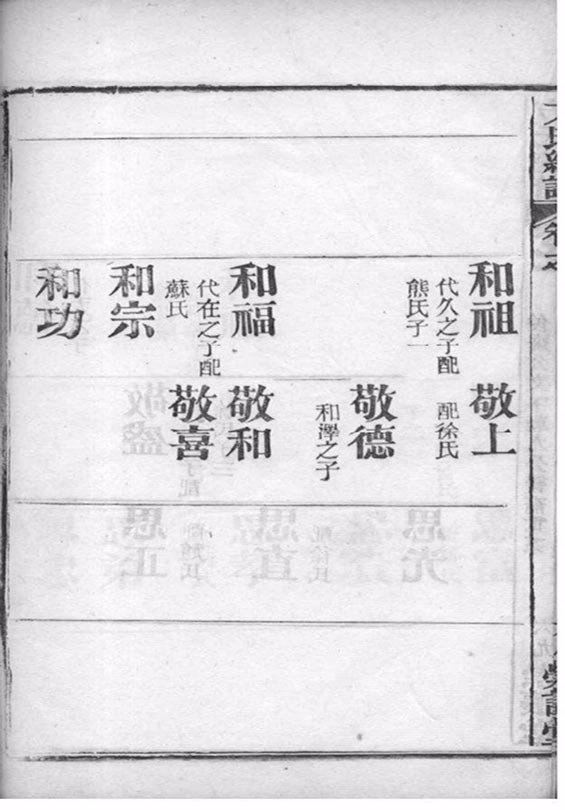 和祖
代久之子配
熊氏子一
和福
代在之子配
蘇氏
和宗
和功
敬上
配徐氏
敬德
和澤之子
敬和
敬喜
氏總譜